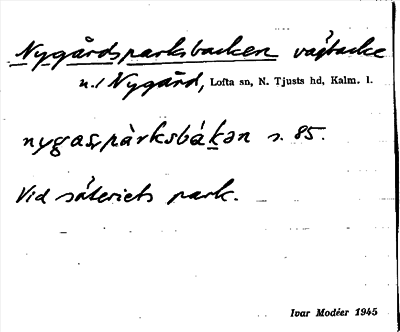 Nygårdsparksbacken vägbacke
u. / Nygård, Lofta sn, N. Tjusts hd, Kalm. l.
nygaṣpàrksbákən s. 85.
Vid säteriets park.
Ivar Modéer 1945